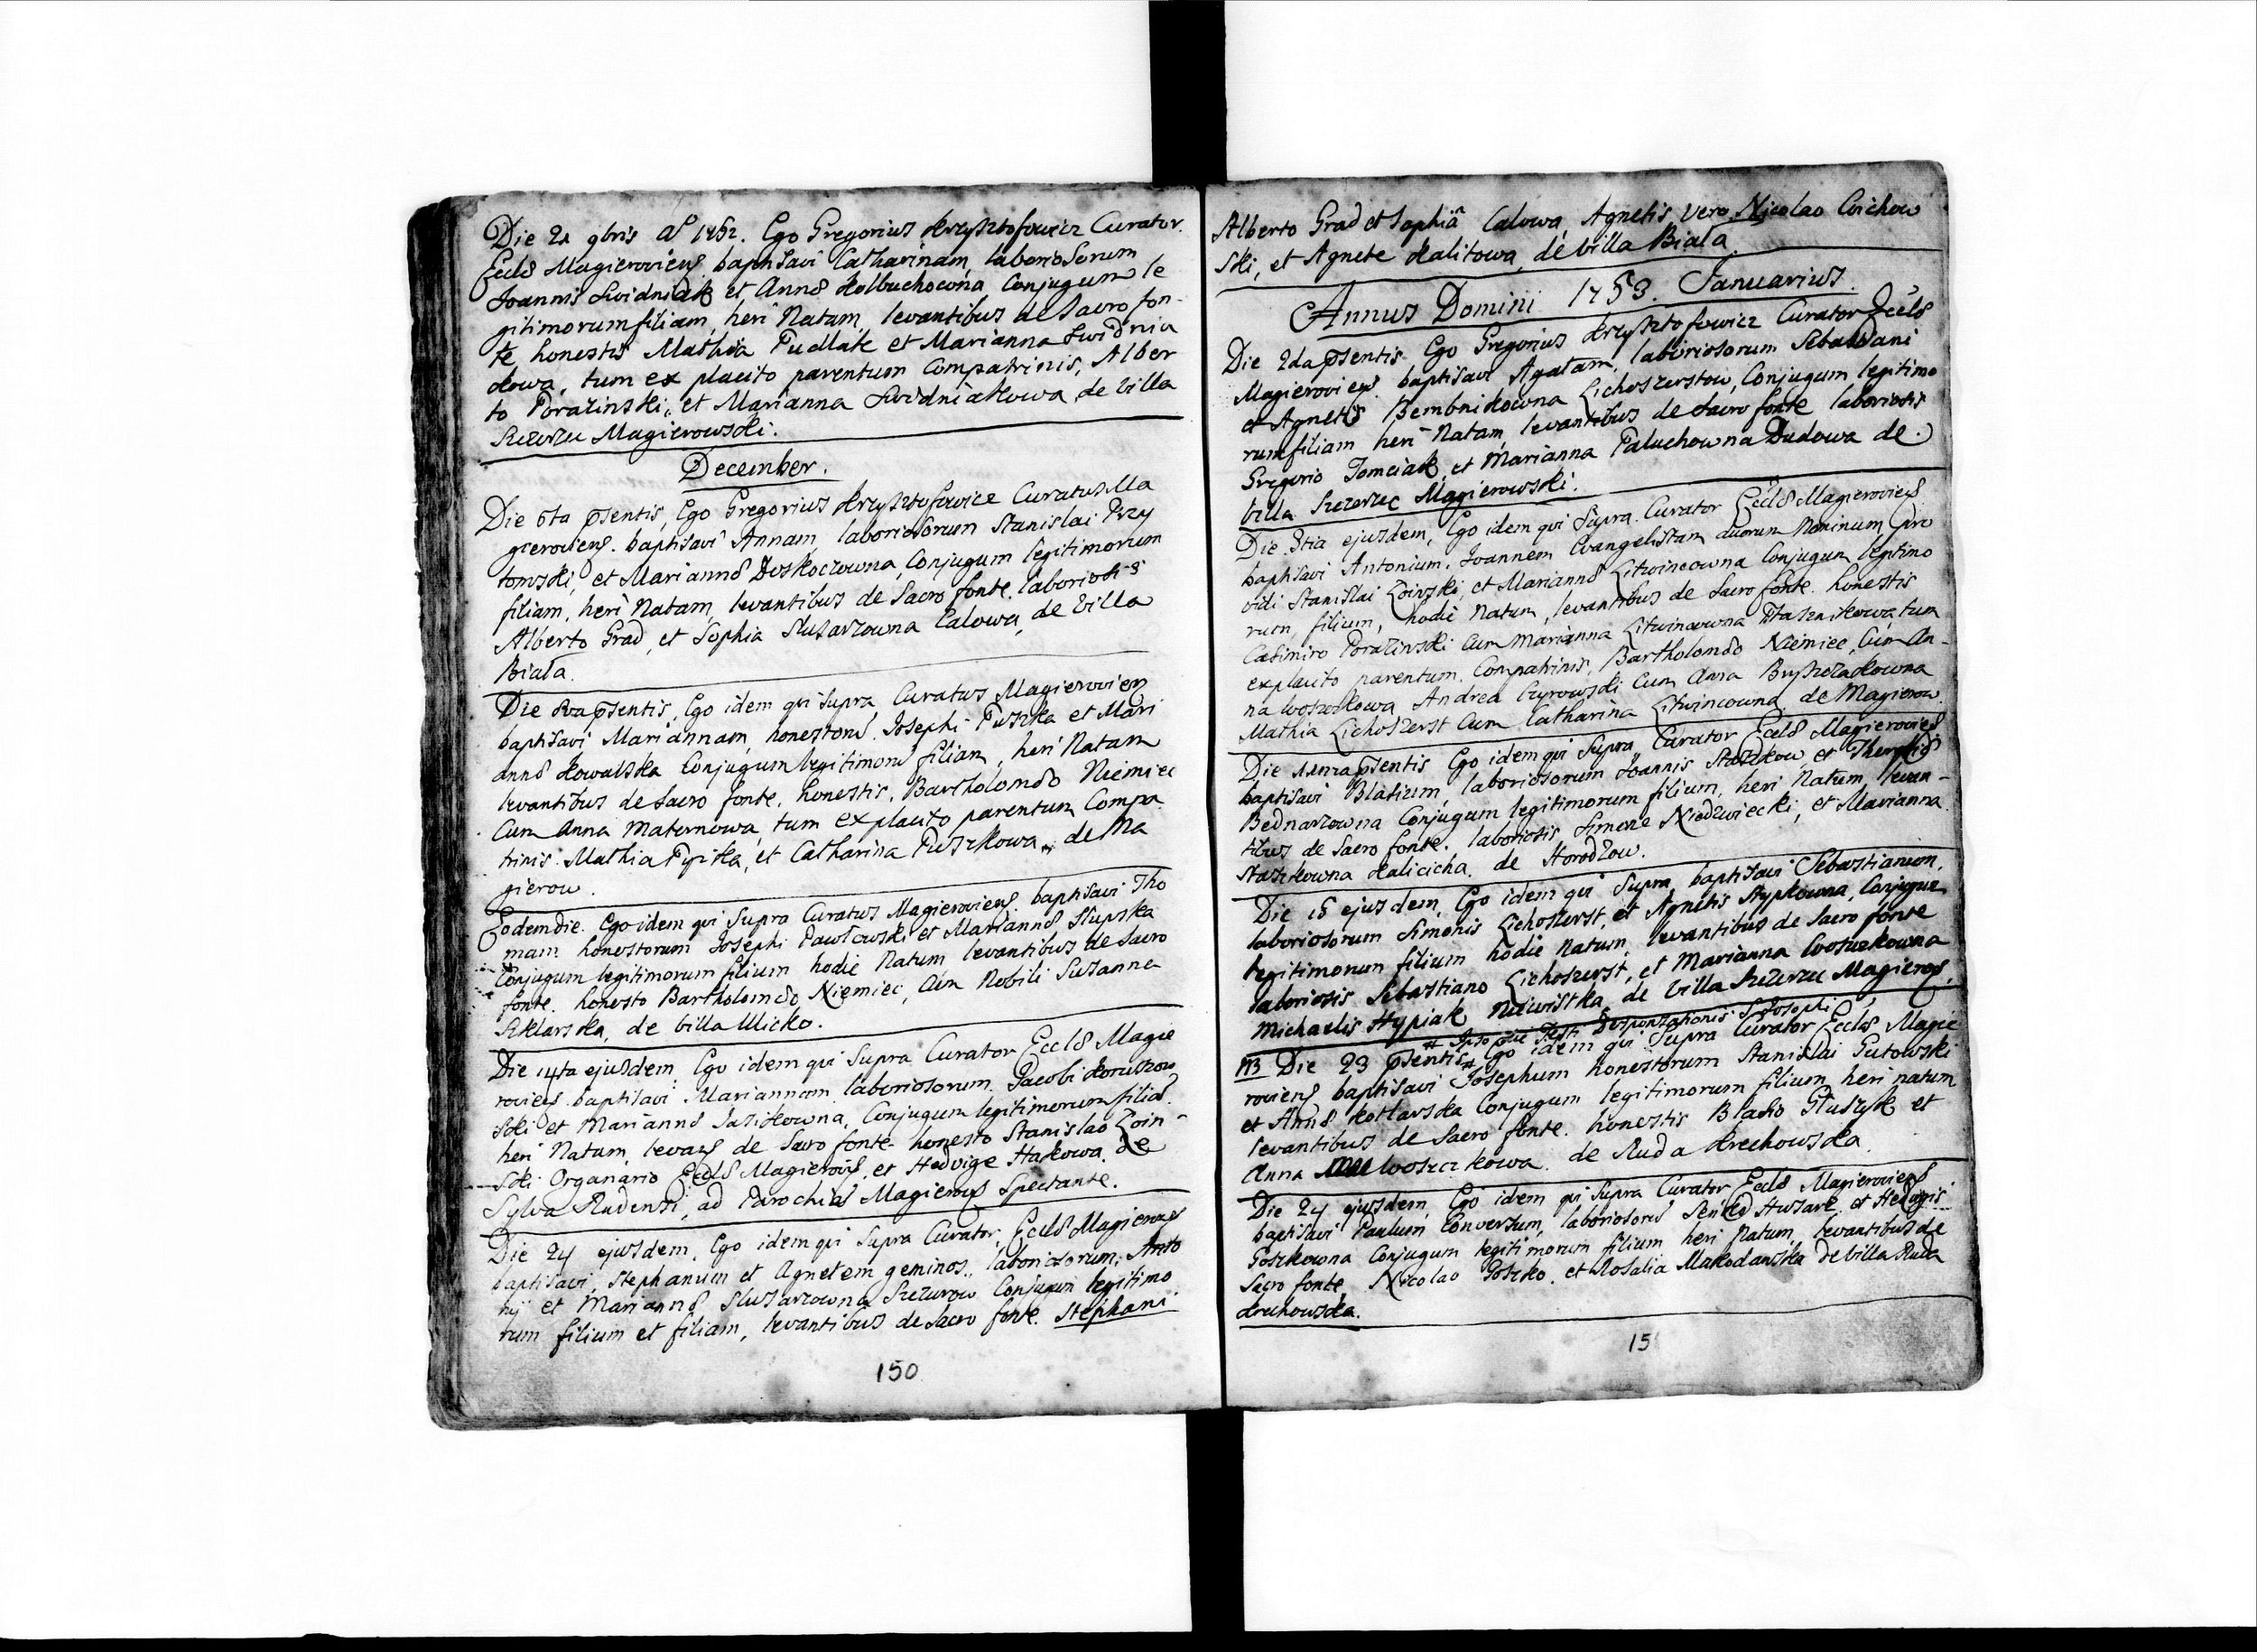 Die 21 9bris A° 1752. Ego Gregorius Krzysztofowicz Curator
Eccls Magierowiens. baptisavi Catharinam, laboriosorum
Joannis Swidniak et Anns Kolbuchowna Conjugum le
gitimorum filiam, heri Natam, levantibus de Sacro fon-
te honestis Mathia Pudlak et Marianna Swidnia
kowa, tum ex placito parentum Compatrinis, Alber
to Porazinski, et Marianna Swidniakowa de Villa
Szczerzec Magierowski.
December.
Die 6ta psentis, Ego Gregorius Krzysztofowicz Curatus Ma
gierowiens. baptisavi Annam, laboriosorum Stanislai Przy
towski, et Marianns Doskoczowna, Conjugum legitimorum
filiam, heri Natam, levantibus de Sacro fonte. laboriosis
Alberto Grad, et Sophia Slusarzowna Calowa, de Villa
Biała.
Die 8va psentis, Ego idem qui Supra Curatus Magierowiens
baptisavi Mariannam, honestorum Josephi Puszka et Mari
anns Kowalska Conjugum legitimorum filiam, heri Natam
levantibus de Sacro fonte, honestis, Bartholomeo Niemiec
Cum Anna Maternowa, tum ex placito parentum Compa
trinis. Mathia Pyzika, et Catharina Puszkowa, de Ma
gierow.
Eodem die. Ego idem qui Supra Curatus Magierowiens. baptisavi Tho
mam honestorum Josephi Pawłowski et Marianns Slupska
Conjugum legitimorum filium hodie Natum levantibus de Sacro
fonte. honesto Bartholomeo Niemiec, Cum Nobili Susanna
Szklarska, de Villa Ulicko.
Die 14ta ejusdem Ego idem qui Supra Curator Eccls Magie
rowiens. baptisavi Mariannam laboriosorum. Jacobi Koruszow
ski et Marianns Jasikowna, Conjugum legitimorum filia
heri Natam, levans de Sacro fonte honesto Stanislao Loin-
ski Organario Eccls Magierowiens, et Hedvige Stakowa. de
Sylva Rudensi, ad Parochias Magierows Spectante.
Die 24 ejusdem, Ego idem qui Supra Curator, Eccls Magierows
baptisavi, Stephanum et Agnetem geminos, laboriosorum, Anto
nij et Marianns Slusarzowna Szczurow Conjugum legitimo
rum filium et filiam, levantibus de Sacro fonte. Stephani
150
Alberto Grad et Sophia Calowa, Agnetis vero Nicolao Cichow
ski, et Agnete Kalitowa, de Villa Biała.
Annus Domini 1753. Januarius.
Die 2da psentis Ego Gregorius Krzysztofowicz Curator Eccls
Magierowiens. baptisavi Agatam, laboriosorum Sebastiani
et Agnetis Bembnikowna Lichoszerstow, Conjugum legitimo
rum filiam heri Natam, levantibus de Sacro fonte laboriosis
Gregorio Tomciak, et Marianna Paluchowna Dudowa de
Villa Szczerzec Magierowski.
Die 3tia ejusdem, Ego idem qui Supra. Curator Eccls Magierowiens
baptisavi Antonium. Joannem Evangelistam duorum Nominum, pro
vidi Stanislai Loinski, et Marianns Litwinowna Conjugum legitimo
rum, filium, hodie Natum, levantibus de Sacro fonte. honestis
Casimiro Porazinski Cum Marianna Litwinowna Ptasznikowa, tum
ex placito parentum. Compatrinis, Bartholomeo Niemiec, Cum An-
na Woszczkowa Andrea Czyrowski Cum Anna Bryszczakowna
Mathia Lichoszerst Cum Catharina Litwinowna de Magierow
Die 11ma psentis Ego idem qui Supra, Curator Eccls Magierowiens
baptisavi Blasium, laboriosorum Joannis Staszkow, et Theresis
Bednarzowna Conjugum legitimorum filium, heri Natum, levan-
tibus de Sacro fonte. laboriosis Simone Niedzwiecki, et Marianna
Staszkowna Kalicicha de Horodzow.
Die 15 ejusdem, Ego idem qui Supra baptisavi Sebastianum,
laboriosorum Simonis Lichoszerst, et Agnetis Stypkowna, Conjugum
legitimorum filium hodie Natum, levantibus de Sacro fonte
laboriosis Sebastiano Lichoszerst, et Marianna Woszczkowna
Michaelis Hypiak Niewistka, de Villa Szczerzec Magierows
# Ipso die Festi Desponsationis S. Josephi
NB Die 23 psentis # Ego idem qui Supra Curator Eccls Magie
rowiens baptisavi Josephum honestorum Stanislai Gutowski
et Anns Kotlarska Conjugum legitimorum filium heri natum
levantibus de Sacro fonte. honestis Blasio Głuszyk et
Anna Woszczkowa. de Ruda Krechowska
Die 24 ejusdem, Ego idem qui Supra Curator Eccls Magierowiens
baptisavi Paulum Conversum, laboriosorum Senko Husark et Hedvigis
Goszkowna Conjugum legitimorum filium heri Natum, levantibus de
Sacro fonte, Nicolao Goszko. et Rosalia Makodanska de Villa Ruda
Krechowska.
15